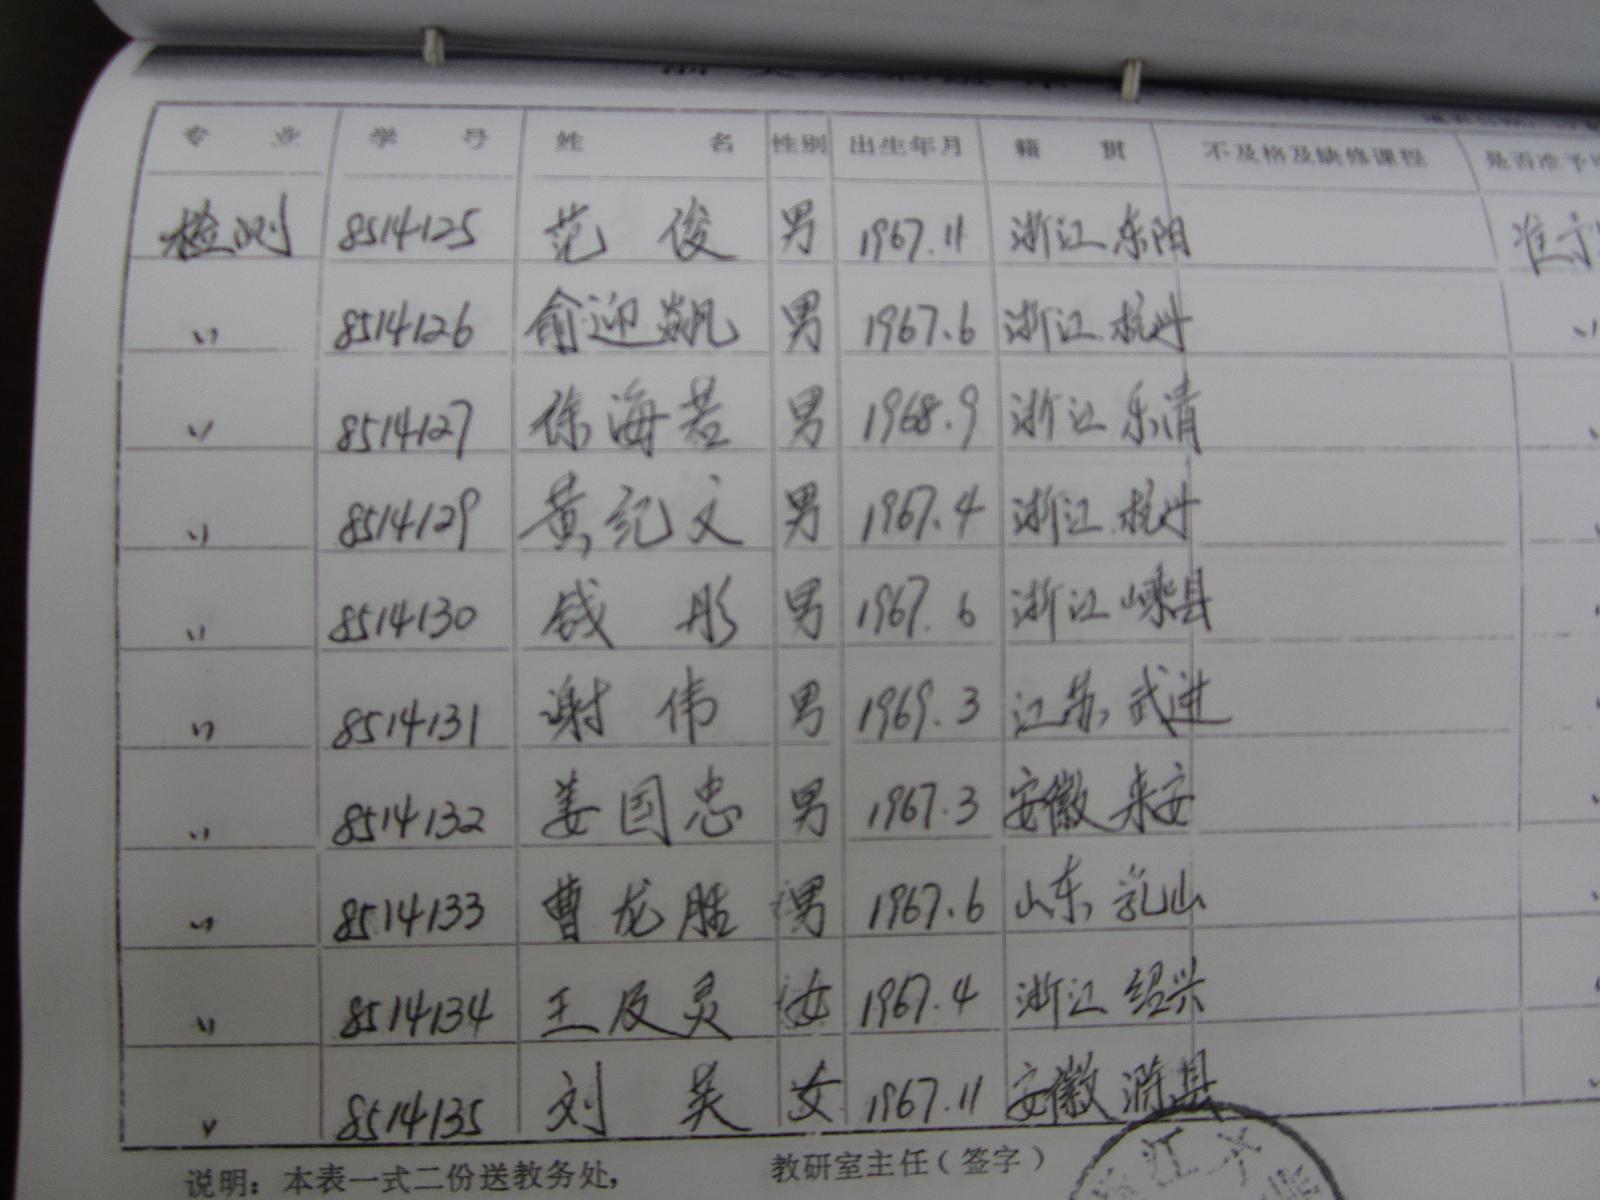 专 业 学 号 姓 名 性别 出生年月 籍 贯 不及格及缺修课程 是否准予
检测 8514125 范 俊 男 1967.11 浙江东阳 准予
〃 8514126 俞迎飙 男 1967.6 浙江杭州 〃
〃 8514127 徐海若 男 1968.9 浙江乐清
〃 8514129 黄纪文 男 1967.4 浙江杭州
〃 8514130 钱 彤 男 1967.6 浙江嵊县
〃 8514131 谢 伟 男 1969.3 江苏武进
〃 8514132 姜国忠 男 1967.3 安徽来安
〃 8514133 曹龙胜 男 1967.6 山东乳山
〃 8514134 王及灵 女 1967.4 浙江绍兴
〃 8514135 刘 英 女 1967.11 安徽滁县
说明：本表一式二份送教务处， 教研室主任（签字）
江大